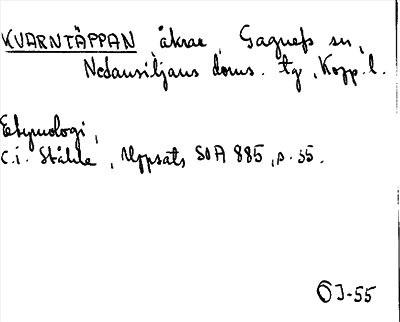 KVARNTÄPPAN åkrar, Gagnefs sn,
Nedansiljans doms. tg, Kopp. l.
Etymologi,
C.I. Ståhle, Uppsats SOA 885, s. 35.
ÖJ-55